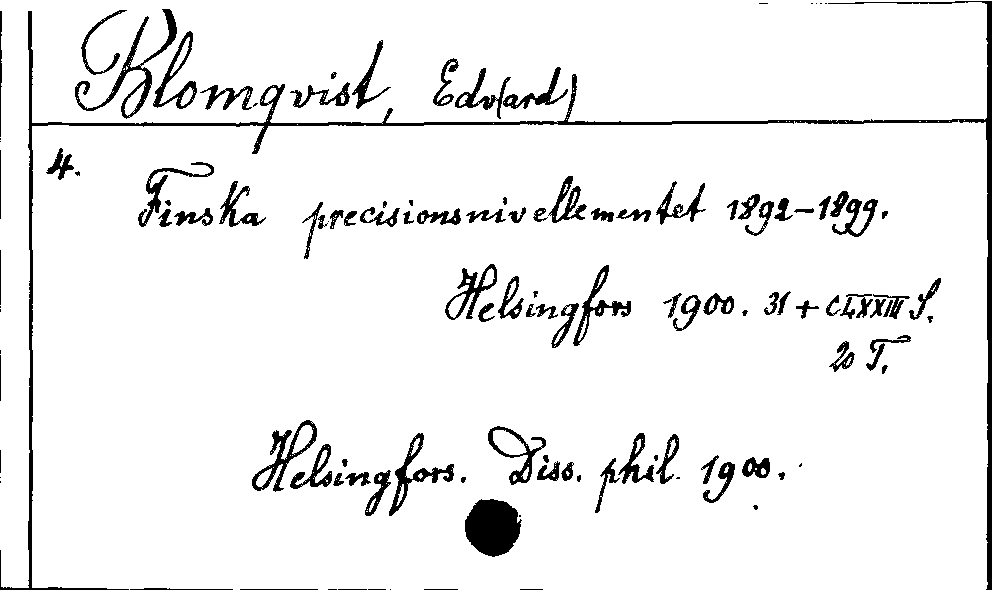 Blomqvist, Edv(ard)
4.
Finska precisionsnivellementet 1892-1899.
Helsingfors 1900. 31 + CLXXIII S.
20 T.
Helsingfors. Diss. phil. 1900.